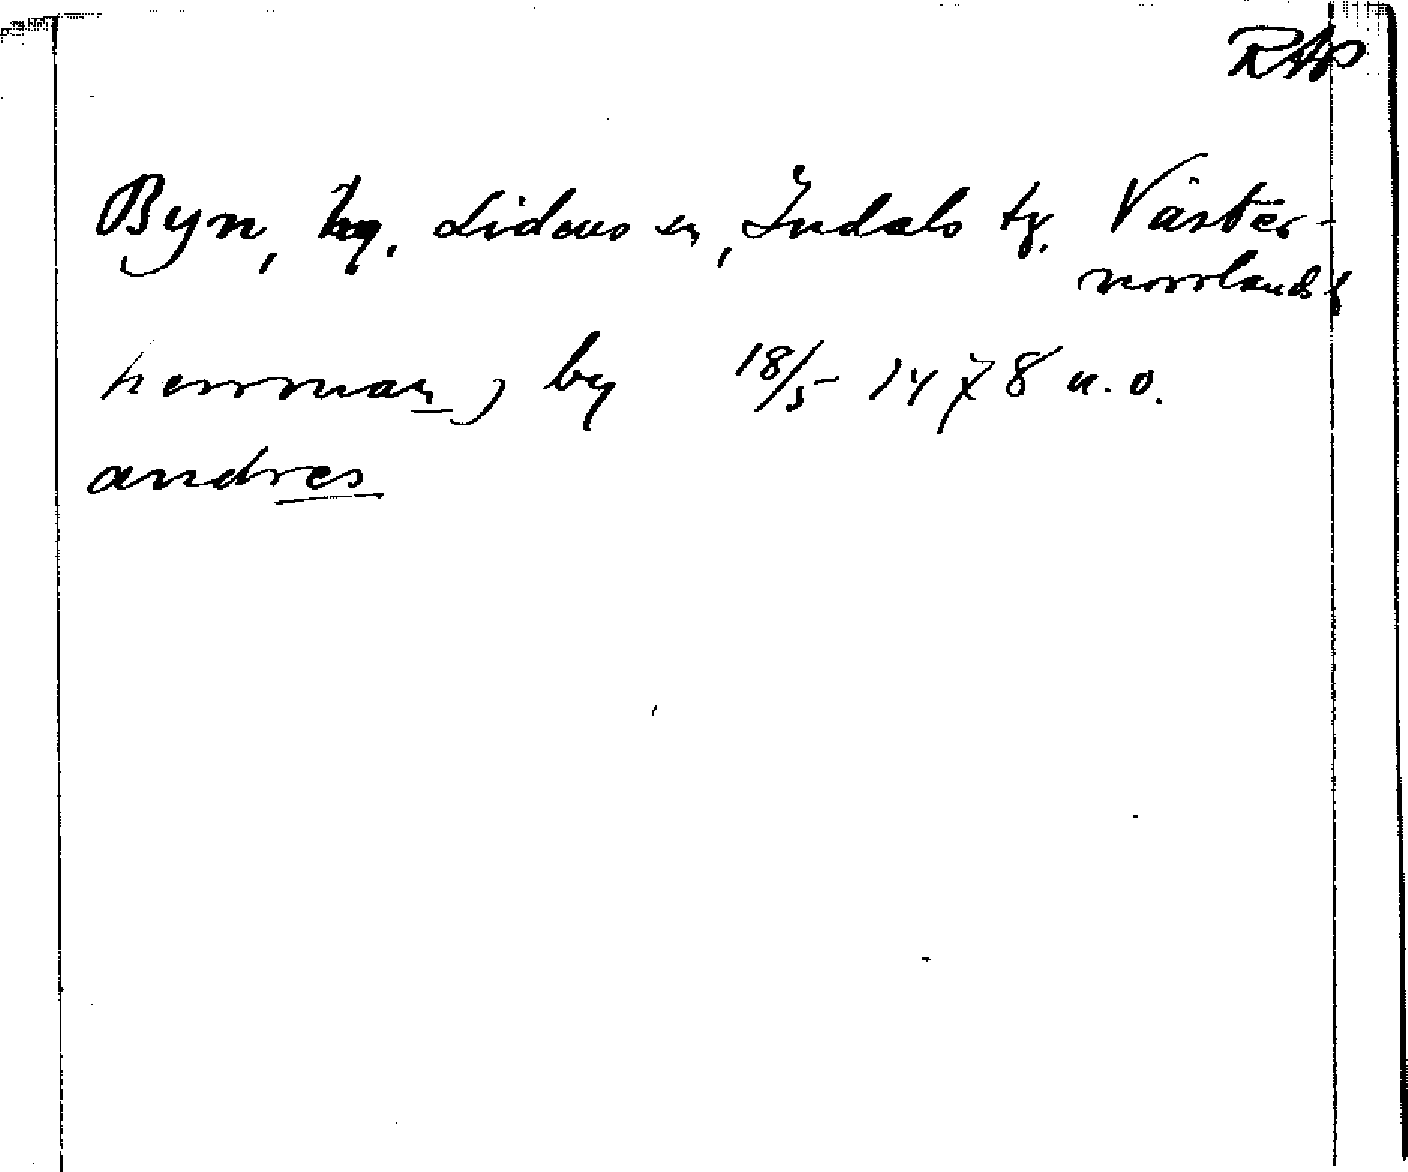 RAP
Byn, by. Lidens sn, Indals tg. Väster-
norrlands l
herman, j by 18/5 1478 u.o.
andres